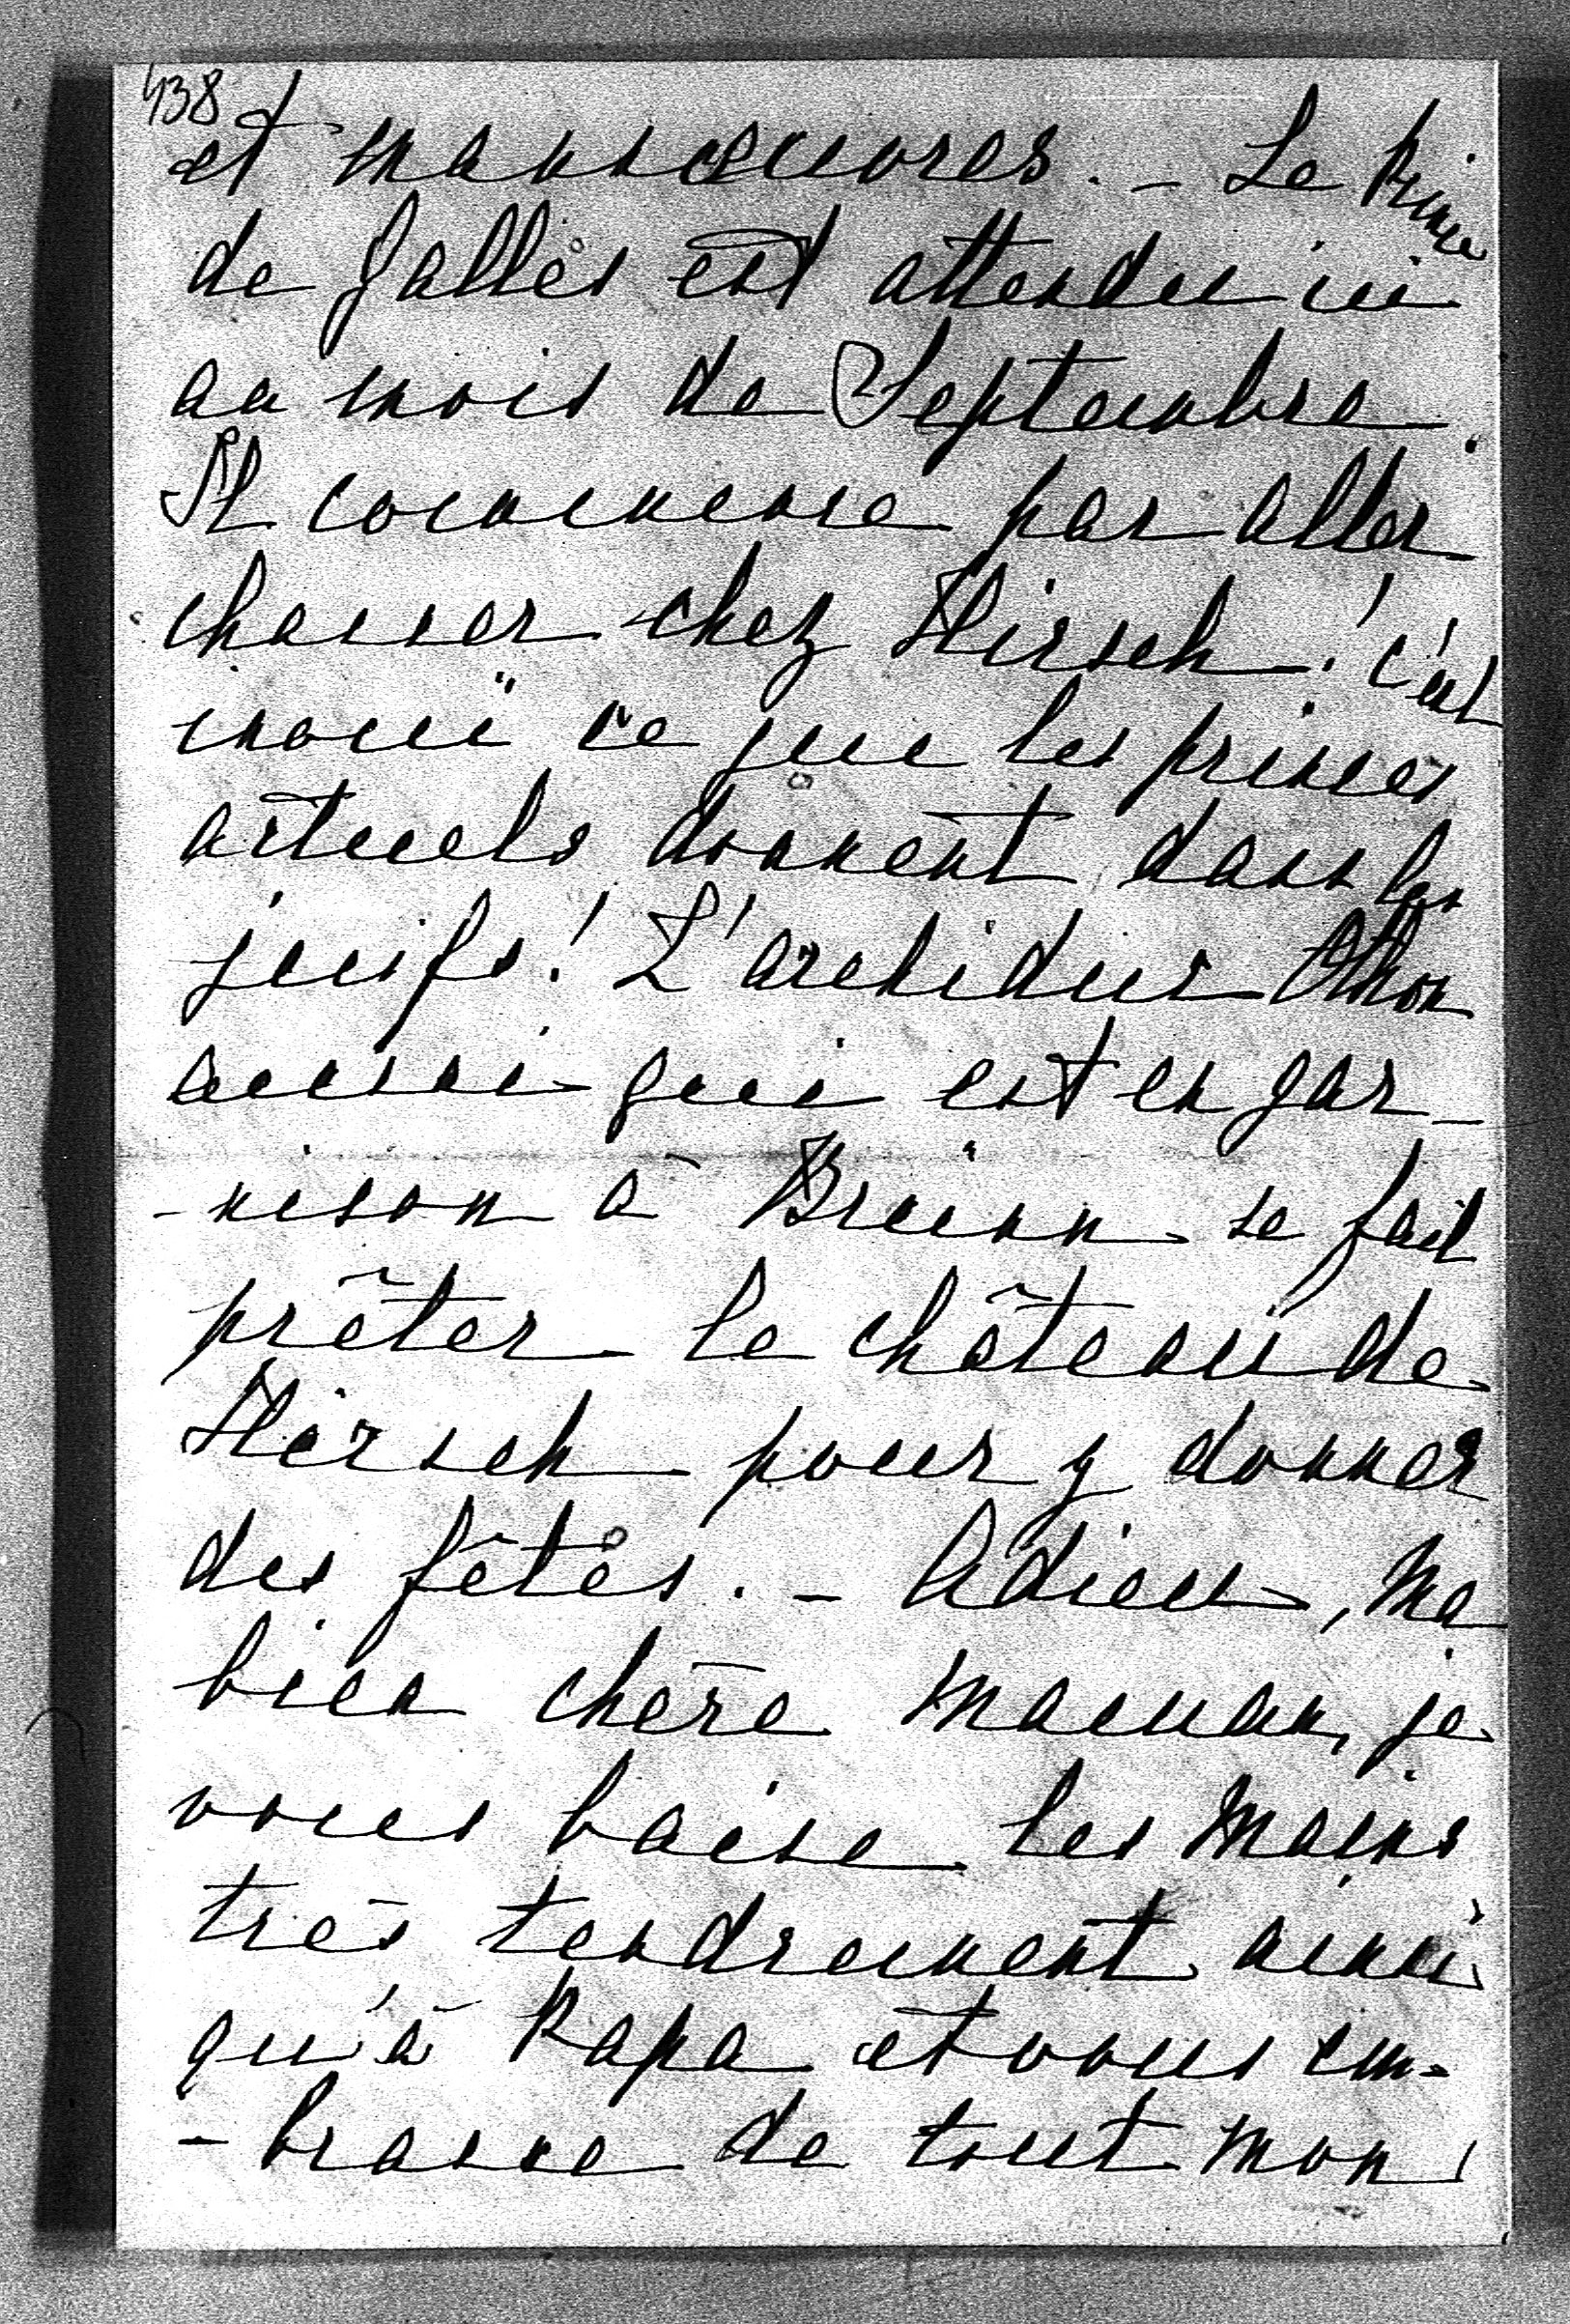 438
et manoeuvres. - Le Prince
de Galles est attendu ici
au mois de Septembre.
Il commence par aller
chasser chez Hirsch! c'est
inouï ce que les princes
actuels donnent dans les
juifs! L'archiduc Othon
aussi qui est en gar-
-nison à Bruinn se fait
prêter le château de
Hirsch pour y donner
des fêtes. - Adieu, ma
bien chère maman, je
vous baise les mains
très tendrement ainsi
qu'à Papa et vous em-
-brasse de tout mon